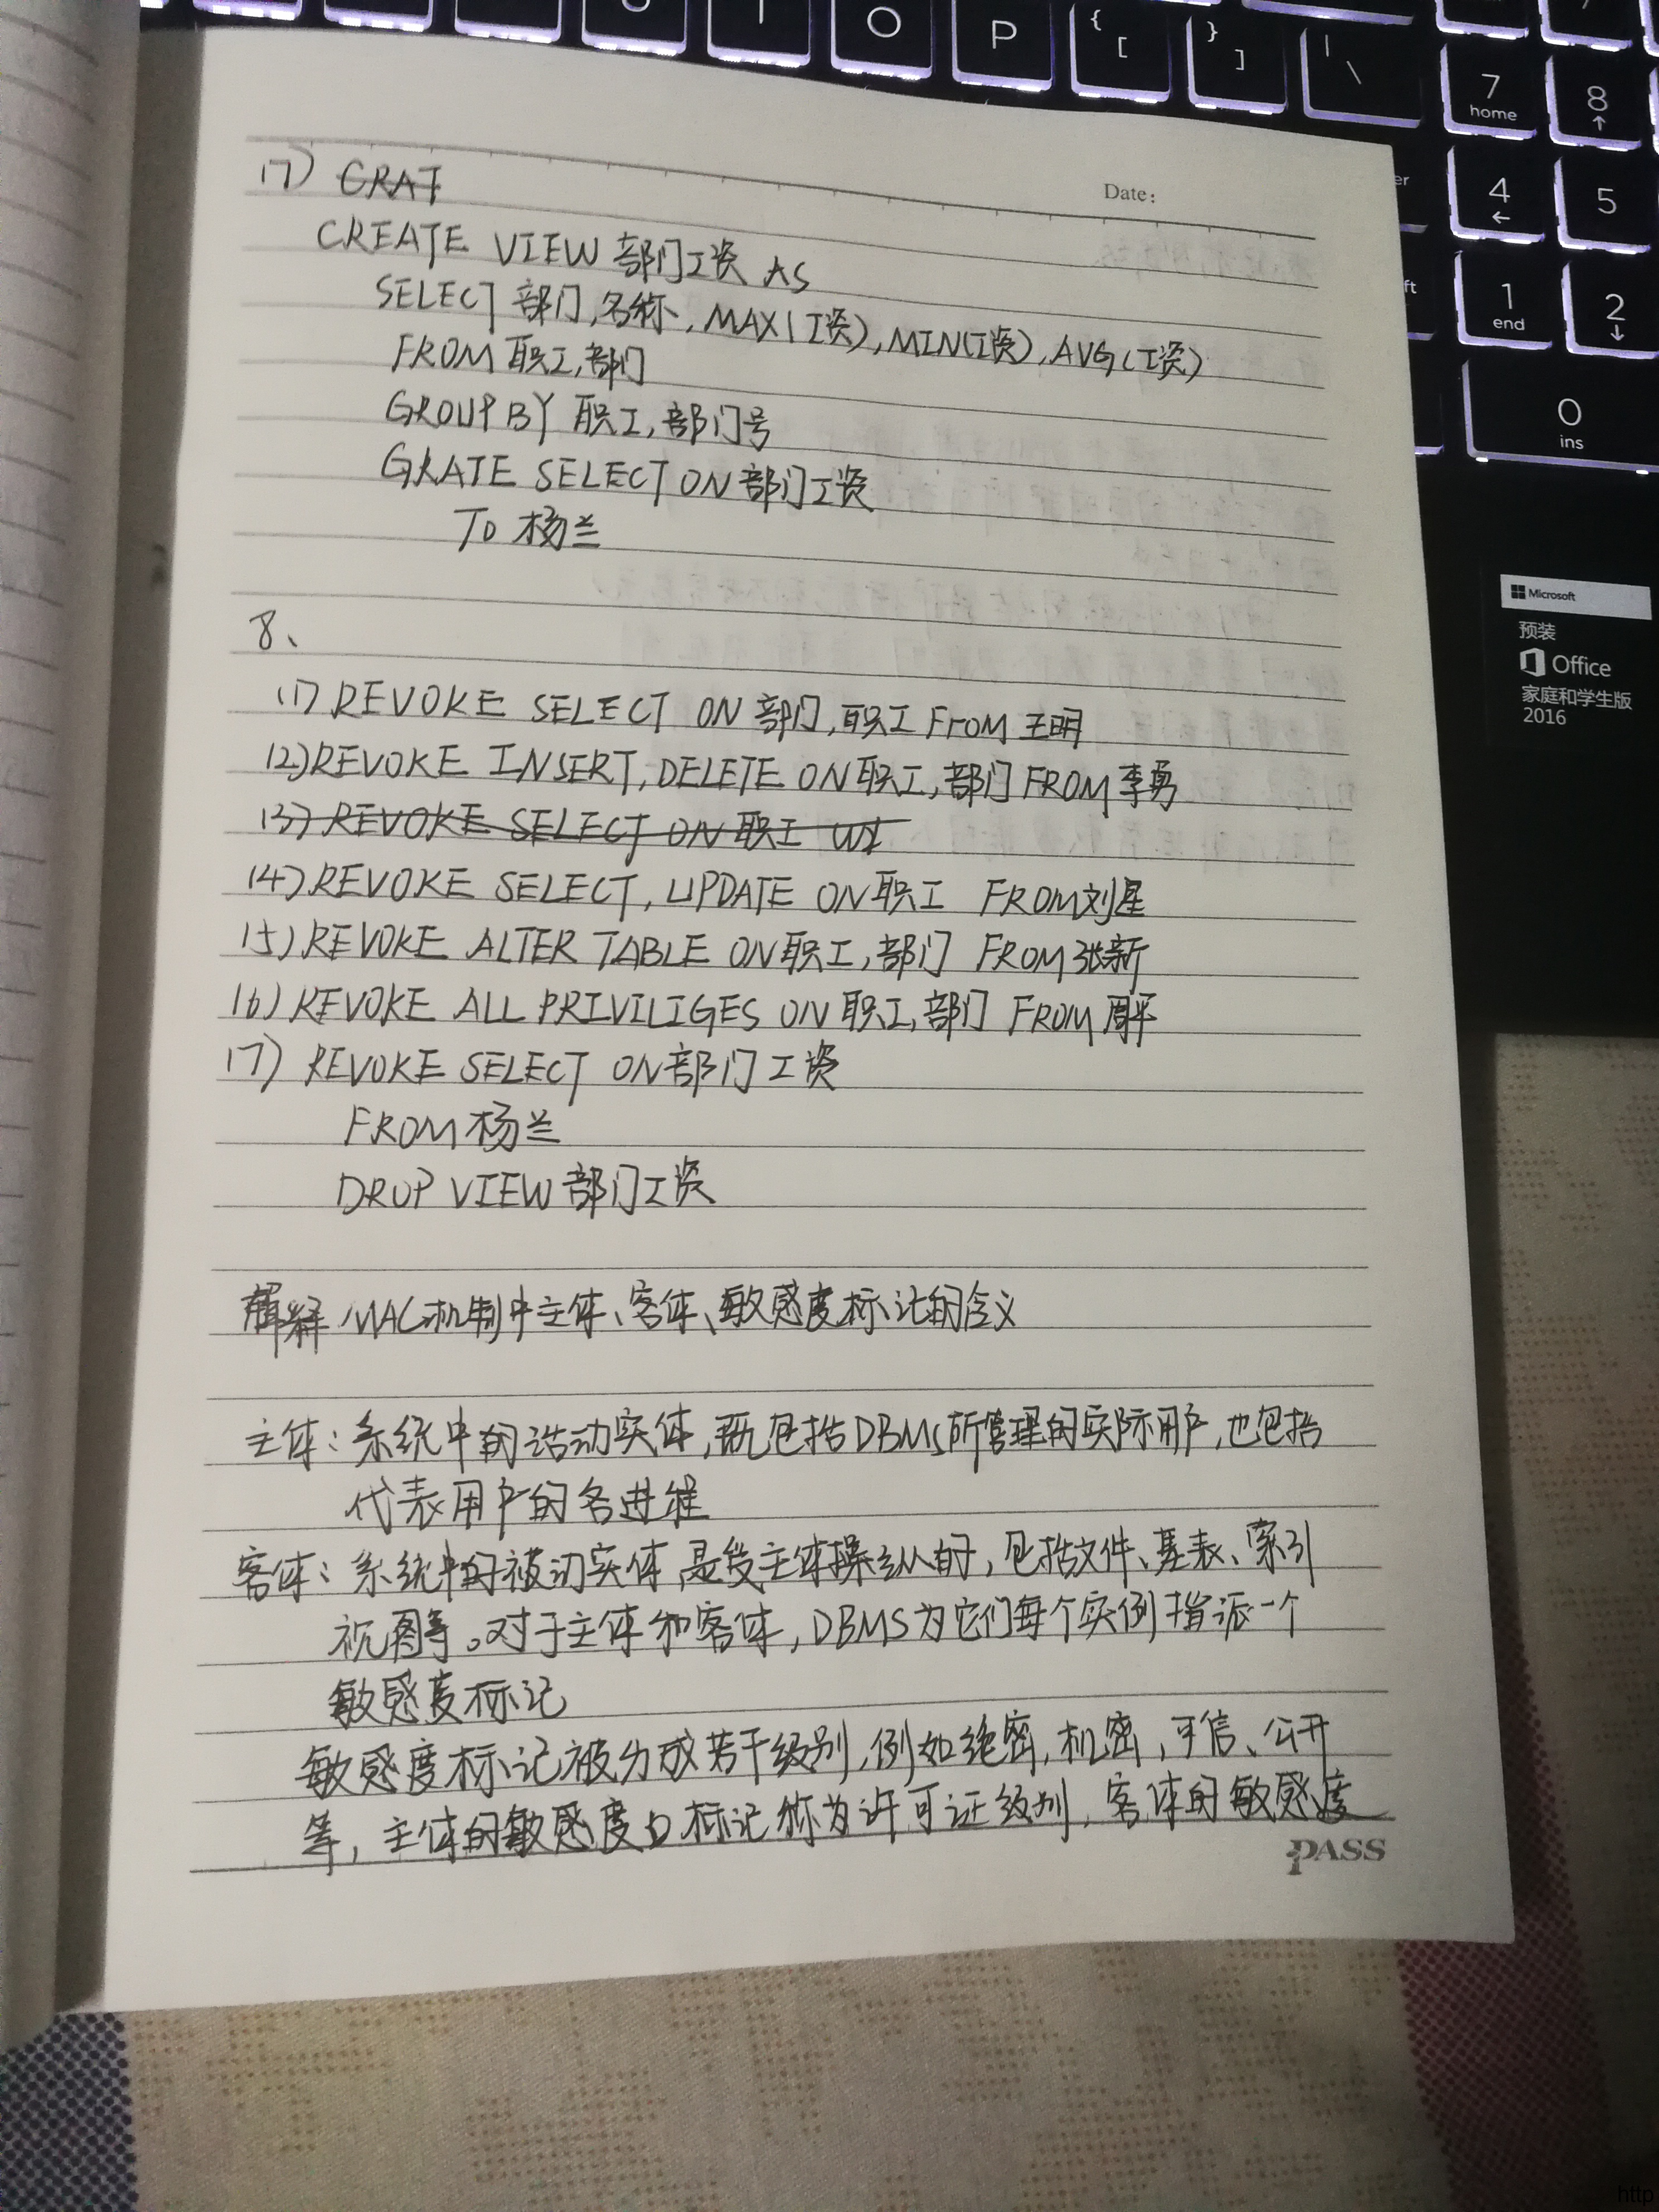 O P { [ } ] | \ 7 home 8 ↑
4 ← 5
1 end 2 ↓
0 ins
Microsoft
预装
Office
家庭和学生版
2016
Date:
(7) CRAT
CREATE VIEW 部门工资 AS
SELECT 部门,名称,MAX(工资),MIN(工资),AVG(工资)
FROM 职工,部门
GROUP BY 职工,部门号
GRATE SELECT ON 部门工资
TO 杨兰
8、
(1) REVOKE SELECT ON 部门,职工 FROM 王明
(2) REVOKE INSERT,DELETE ON 职工,部门 FROM 李勇
(3) REVOKE SELECT ON 职工
(4) REVOKE SELECT,UPDATE ON 职工 FROM 刘星
(5) REVOKE ALTER TABLE ON 职工,部门 FROM 张新
(6) REVOKE ALL PRIVILIGES ON 职工,部门 FROM 周平
(7) REVOKE SELECT ON 部门工资
FROM 杨兰
DROP VIEW 部门工资
解释 MAC机制中主体、客体、敏感度标记的含义
主体:系统中的活动实体,既包括DBMS所管理的实际用户,也包括
代表用户的各进程
客体:系统中的被动实体,是受主体操纵的,包括文件、基表、索引
视图等。对于主体和客体,DBMS为它们每个实例指派一个
敏感度标记
敏感度标记被分成若干级别,例如绝密,机密,可信、公开
等,主体的敏感度标记称为许可证级别,客体的敏感度
PASS
http